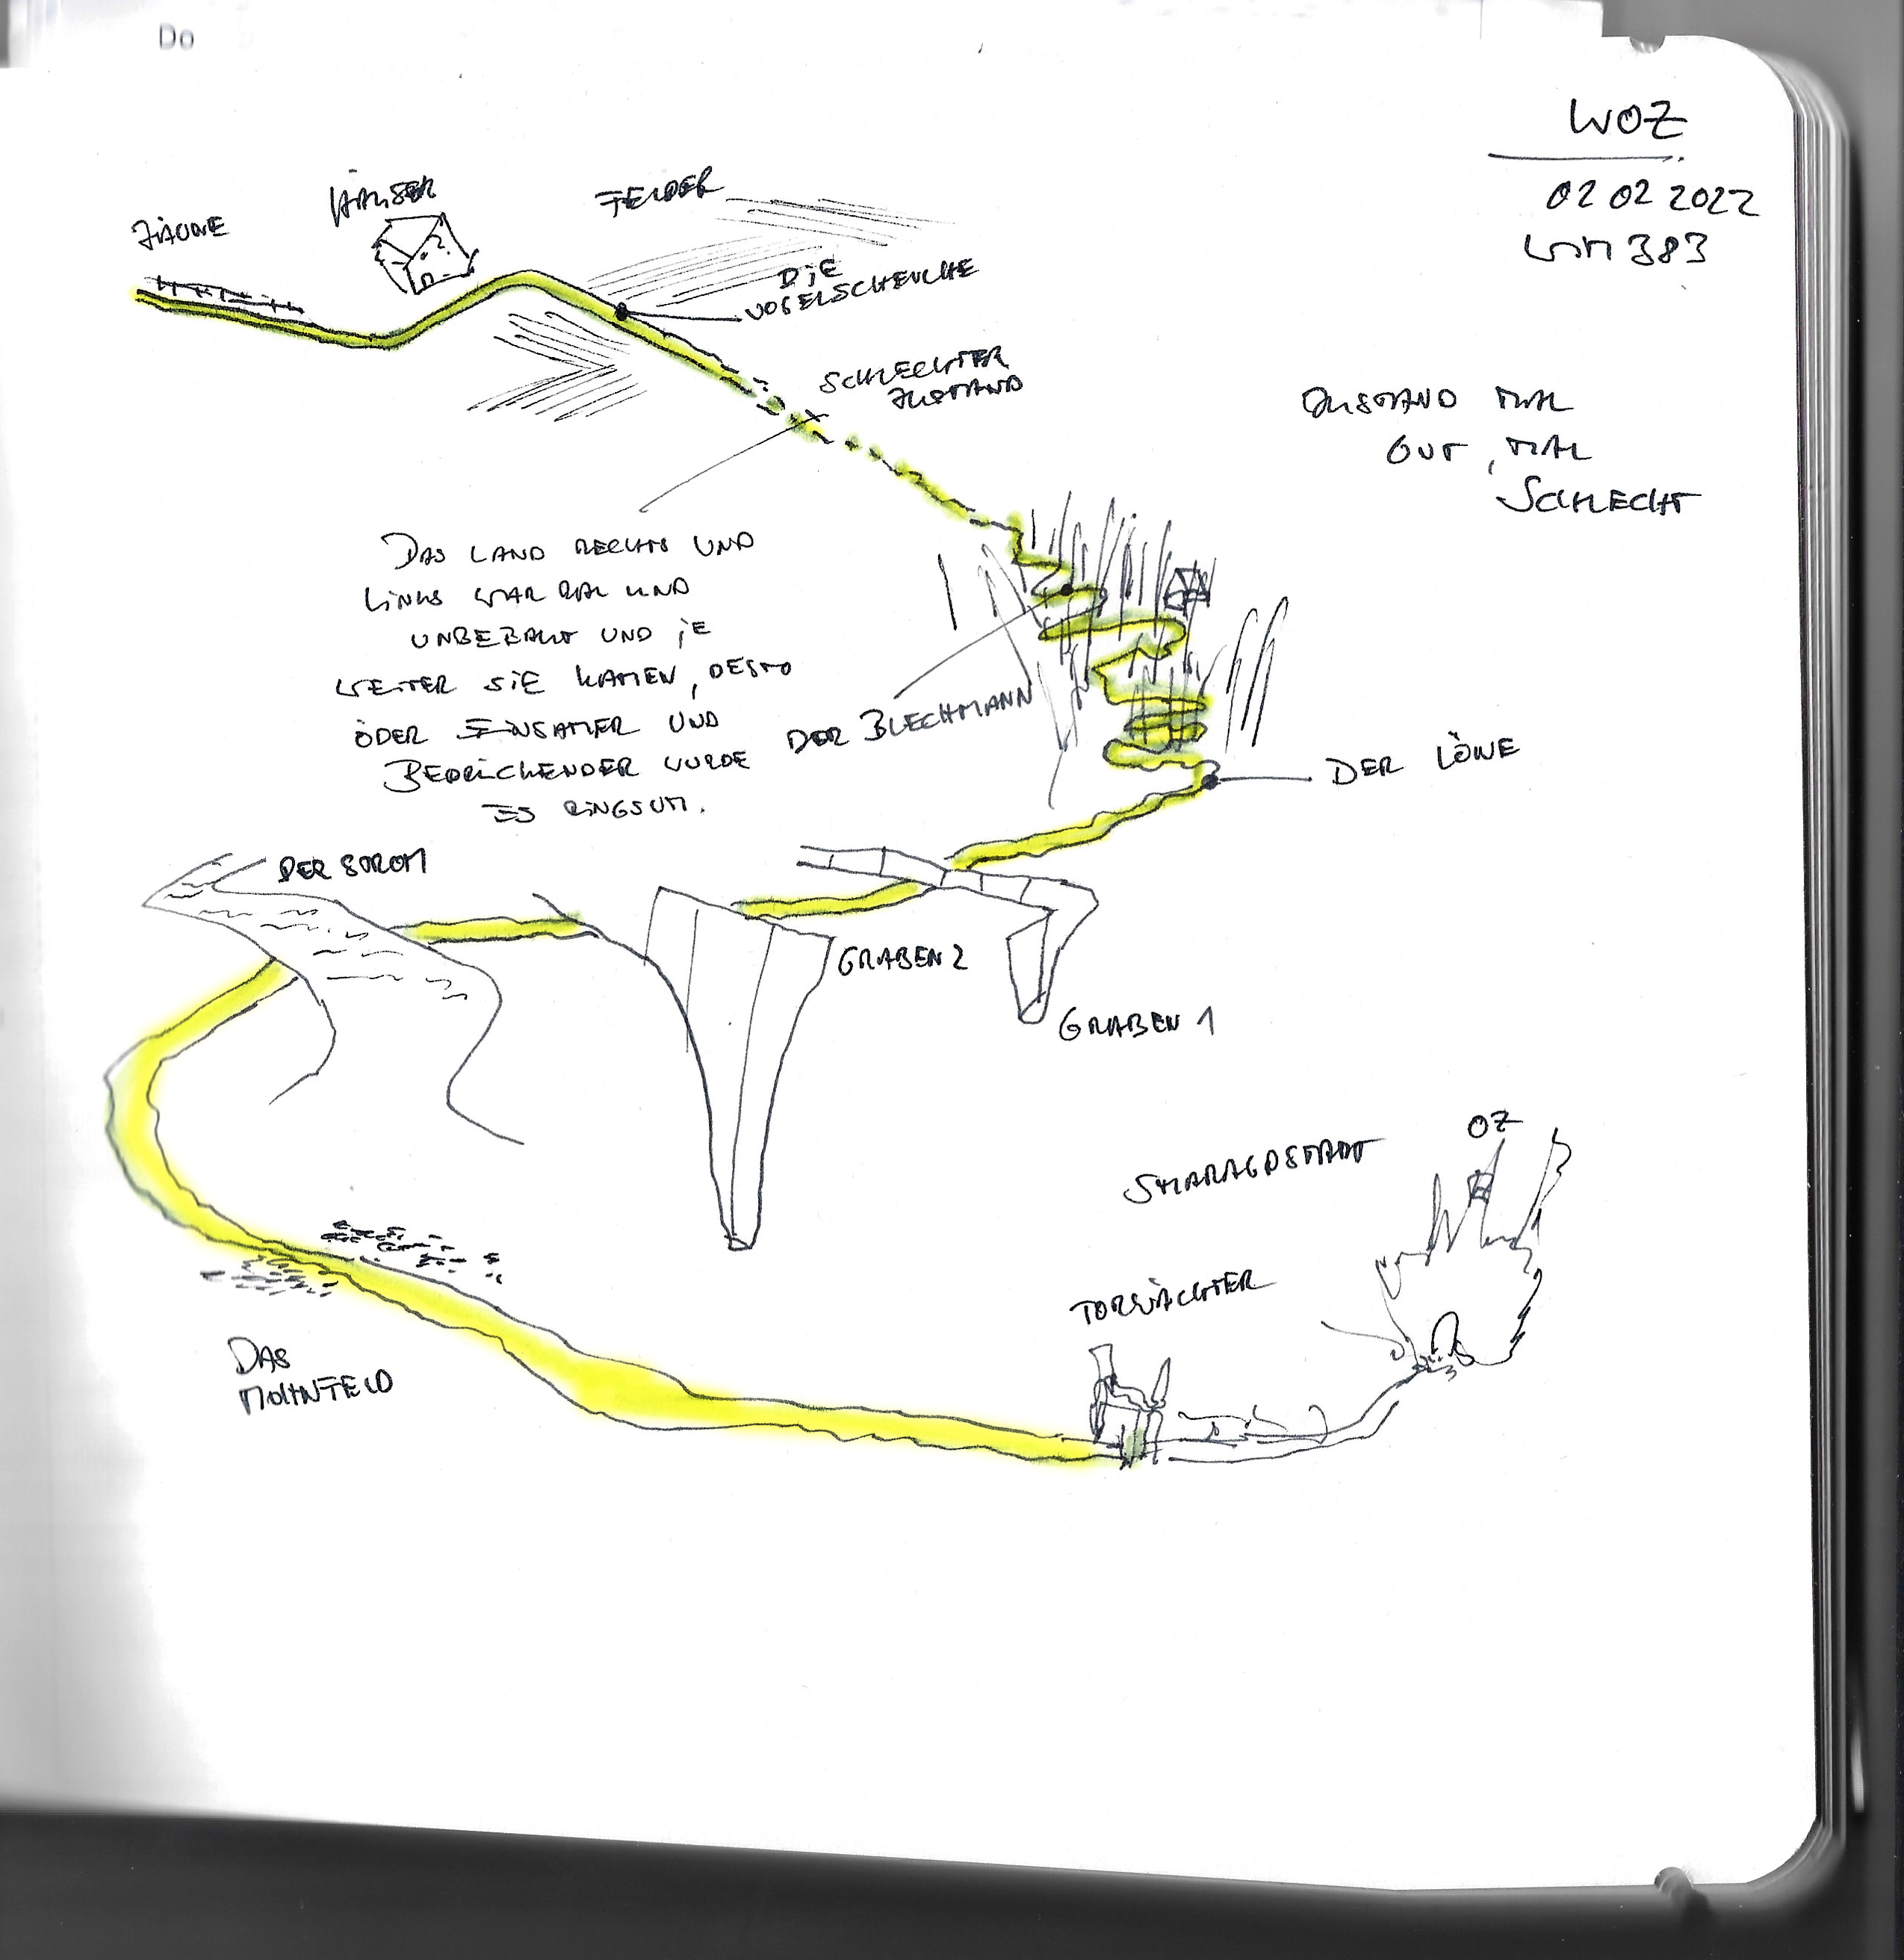 Do
WOZ
02 02 2022
WM 383
ZÄUNE
HÄUSER
FELDER
DIE
VOGELSCHEUCHE
SCHLECHTER
ZUSTAND
ZUSTAND MAL
GUT, MAL
SCHLECHT
DAS LAND RECHTS UND
LINKS WAR UND
UNBEBAUT UND JE
WEITER SIE KAMEN, DESTO
ÖDER EINSAMER UND
BEDRÜCKENDER WURDE
ES RINGSUM.
DER BLECHMANN
DER LÖWE
DER STROM
GRABEN 2
GRABEN 1
OZ
SMARAGDSTADT
TORWÄCHTER
DAS
MOHNFELD